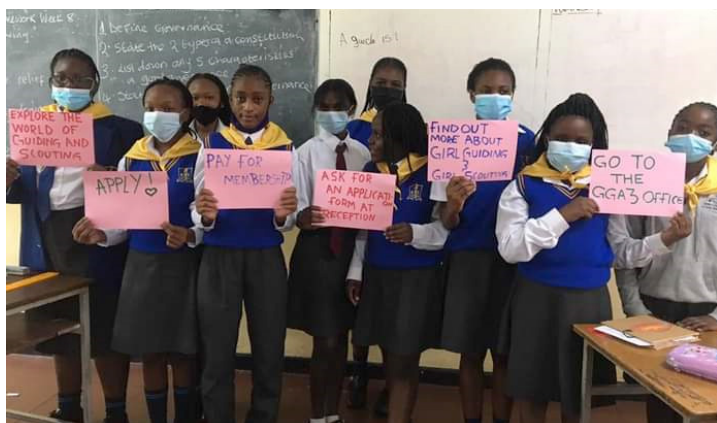 1 Define Governance
2. State the 2 types of a constitution
3. List down any 5 characteristics
A guide is?
EXPLORE THE
WORLD OF
GUIDING AND
SCOUTING
APPLY!
PAY FOR
MEMBERSHIP
ASK FOR
AN APPLICATI
FORM AT
RECEPTION
FIND OUT
MORE ABOUT
GIRL GUIDING
&
GIRL SCOUTING
GO TO
THE
GGA3 OFFICE